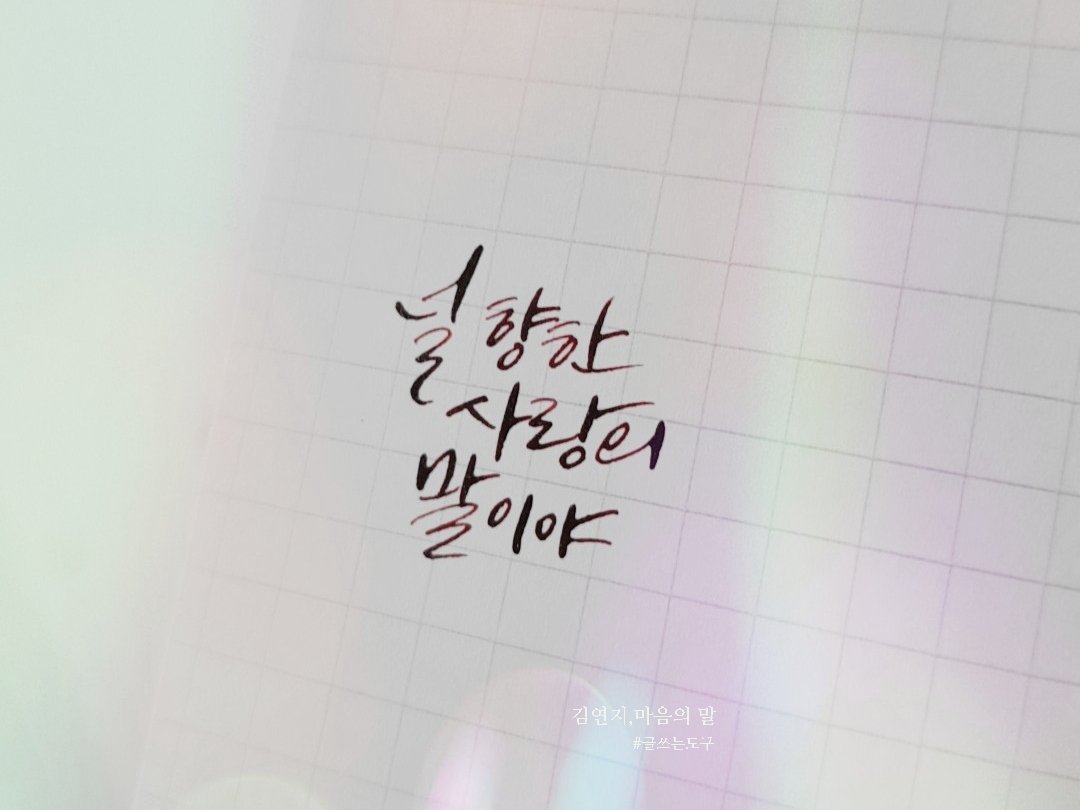 널 향한
사랑의
말이야
김연지,마음의 말
#글쓰는도구